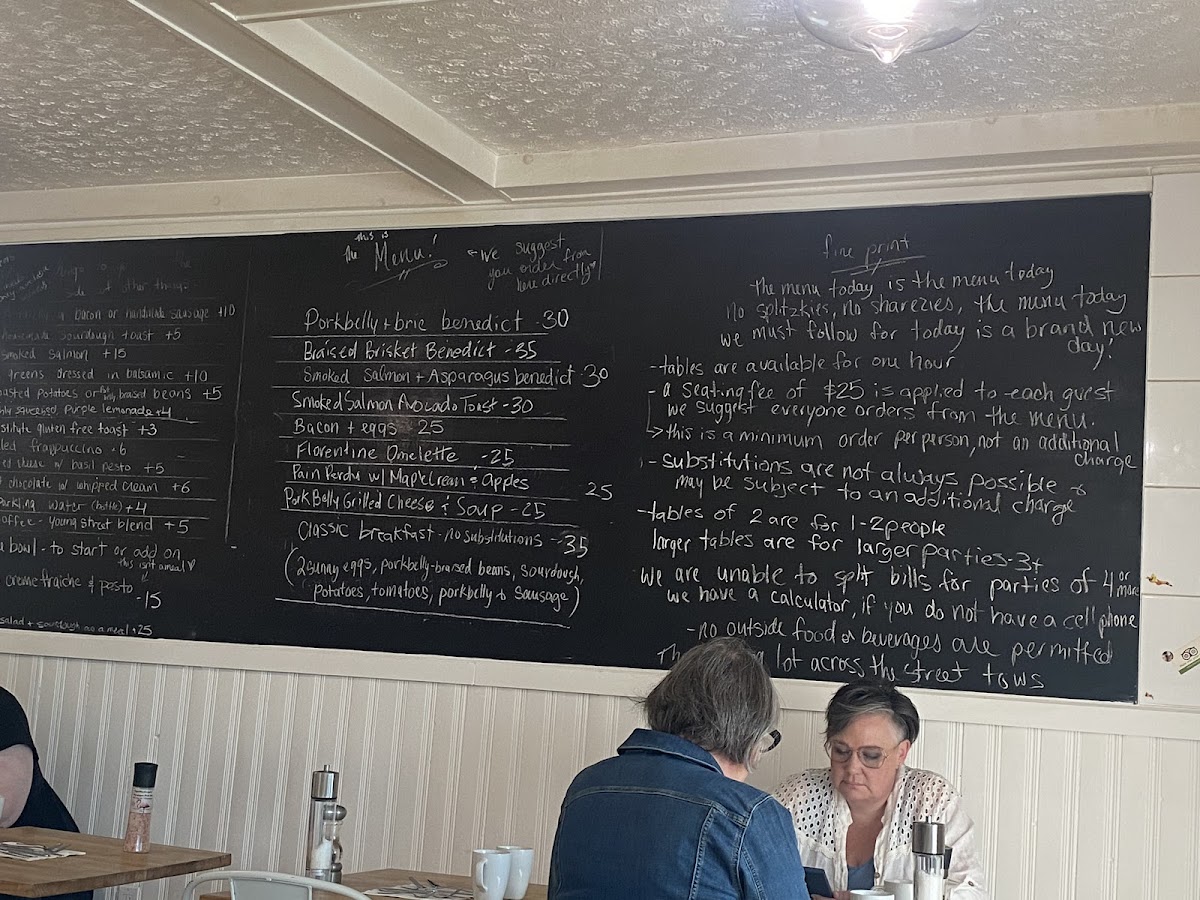 side of other things
bacon or handmade sausage +10
homemade sourdough toast +5
smoked salmon +15
greens dressed in balsamic +10
potatoes or braised beans +5
squeezed purple lemonade +4
gluten free toast +3
frappuccino - 6
w/ basil pesto +5
chocolate w/ whipped cream +6
water (bottle) +4
- Young Street blend +5
bowl - to start or add on
this isn't a meal
creme fraiche & pesto
-15
salad + as a meal +25
this is
the Menu!
← we suggest
you order from
here directly
Porkbelly + brie benedict -30
Braised Brisket Benedict -35
Smoked Salmon + Asparagus benedict -30
Smoked Salmon Avocado Toast -30
Bacon + eggs - 25
Florentine Omelette -25
Pain Perdu w/ Maple cream & Apples
25
Pork Belly Grilled Cheese & Soup -25
Classic breakfast - no substitutions -35
(2 sunny eggs, porkbelly-braised beans, sourdough,
potatoes, tomatoes, porkbelly & sausage)
fine print
The menu today is the menu today
No splitzkies, no sharezies, the menu today
we must follow for today is a brand new
day!
- tables are available for one hour
- a seating fee of $25 is applied to each guest
we suggest everyone orders from the menu.
→ this is a minimum order per person, not an additional
charge
- substitutions are not always possible &
may be subject to an additional charge
- tables of 2 are for 1-2 people
larger tables are for larger parties - 3+
we are unable to split bills for parties of 4 or more
we have a calculator, if you do not have a cell phone
- no outside food or beverages are permitted
lot across the street tows